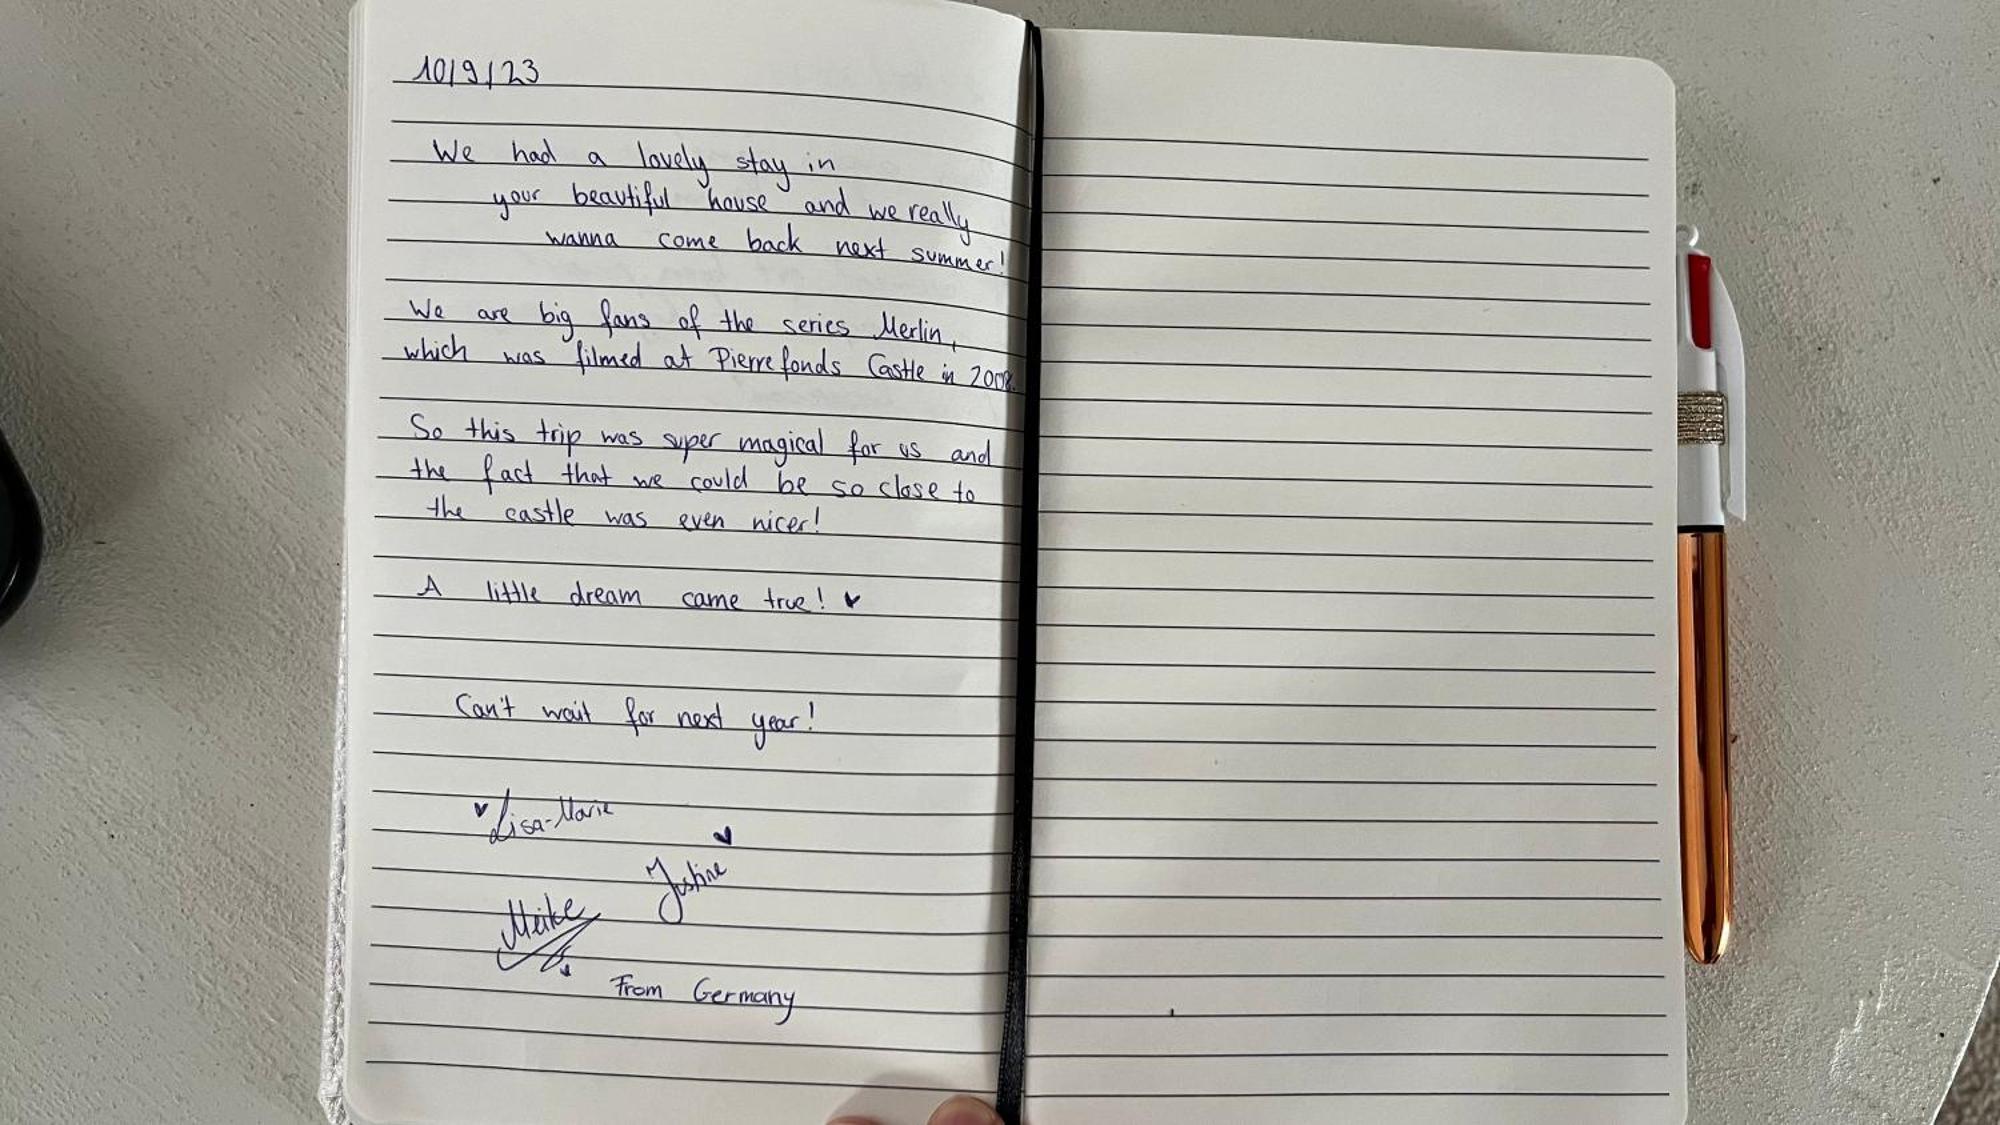 10/9/23
We had a lovely stay in
your beautiful house and we really
wanna come back next summer!
We are big fans of the series Merlin,
which was filmed at Pierrefonds Castle in 2008.
So this trip was super magical for us and
the fact that we could be so close to
the castle was even nicer!
A little dream came true! ♥
Can't wait for next year!
♥ Lisa-Marie
♥
Justine
Meike
From Germany